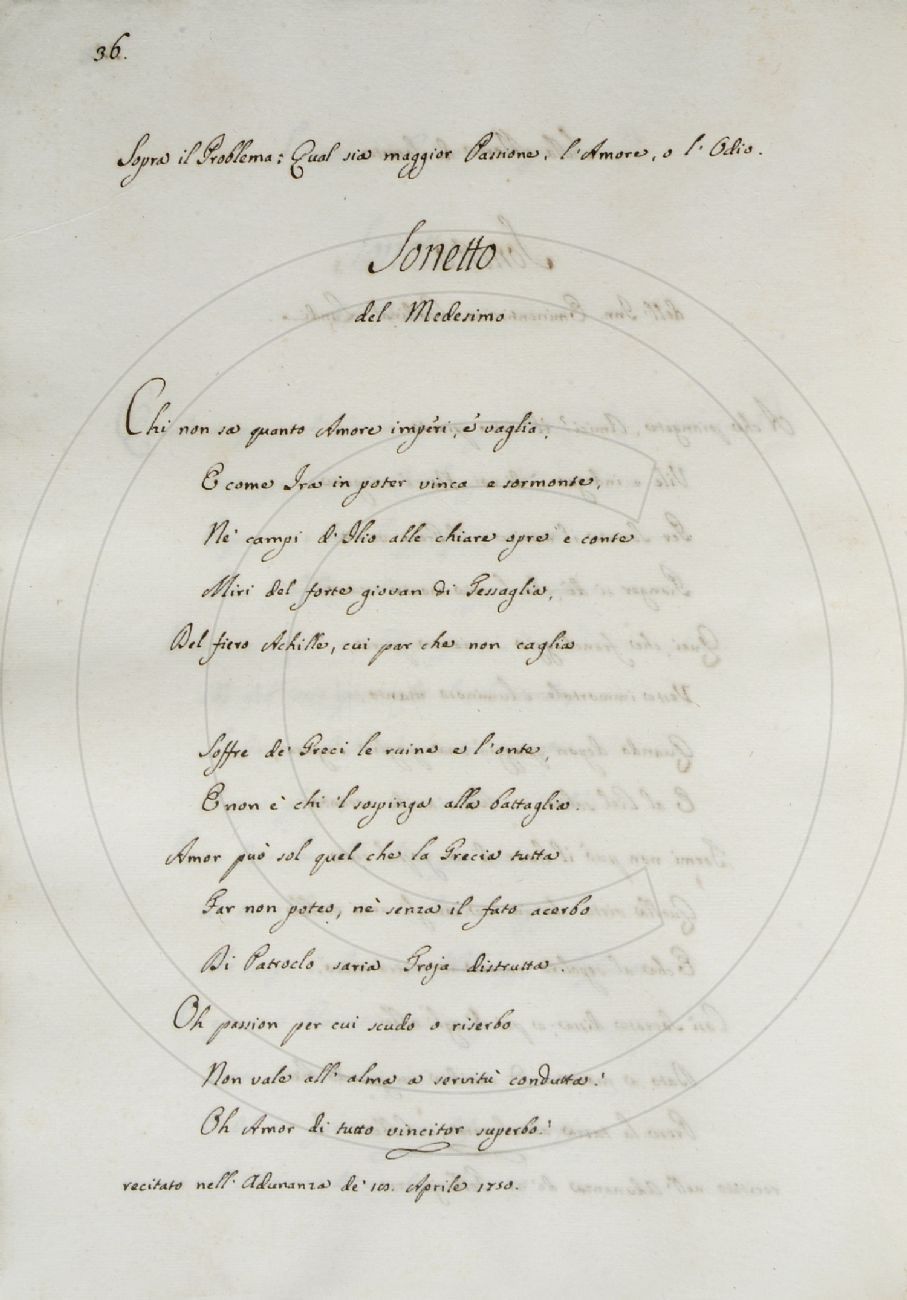 36.
Sopra il Problema: Qual sia maggior Passione, l'Amore, o l'Odio.
Sonetto
del Medesimo
Chi non sa quanto Amore imperi, e vaglia,
E come Ira in poter vinca e sormonte,
Ne' campi d'Ilio alle chiare opre e conte
Miri del forte giovan di Tessaglia,
Del fiero Achille, cui par che non caglia
Soffre de' Greci le ruine e l'onte,
E non è chi 'l sospinga alla battaglia.
Amor può sol quel che la Grecia tutta
Far non poteo, nè senza il fato acerbo
Di Patroclo saria Troja distrutta.
Oh passion per cui scudo o riserbo
Non vale all'alma a servitù condutta!
Oh Amor di tutto vincitor superbo!
recitato nell'Adunanza de' 10. Aprile 1750.